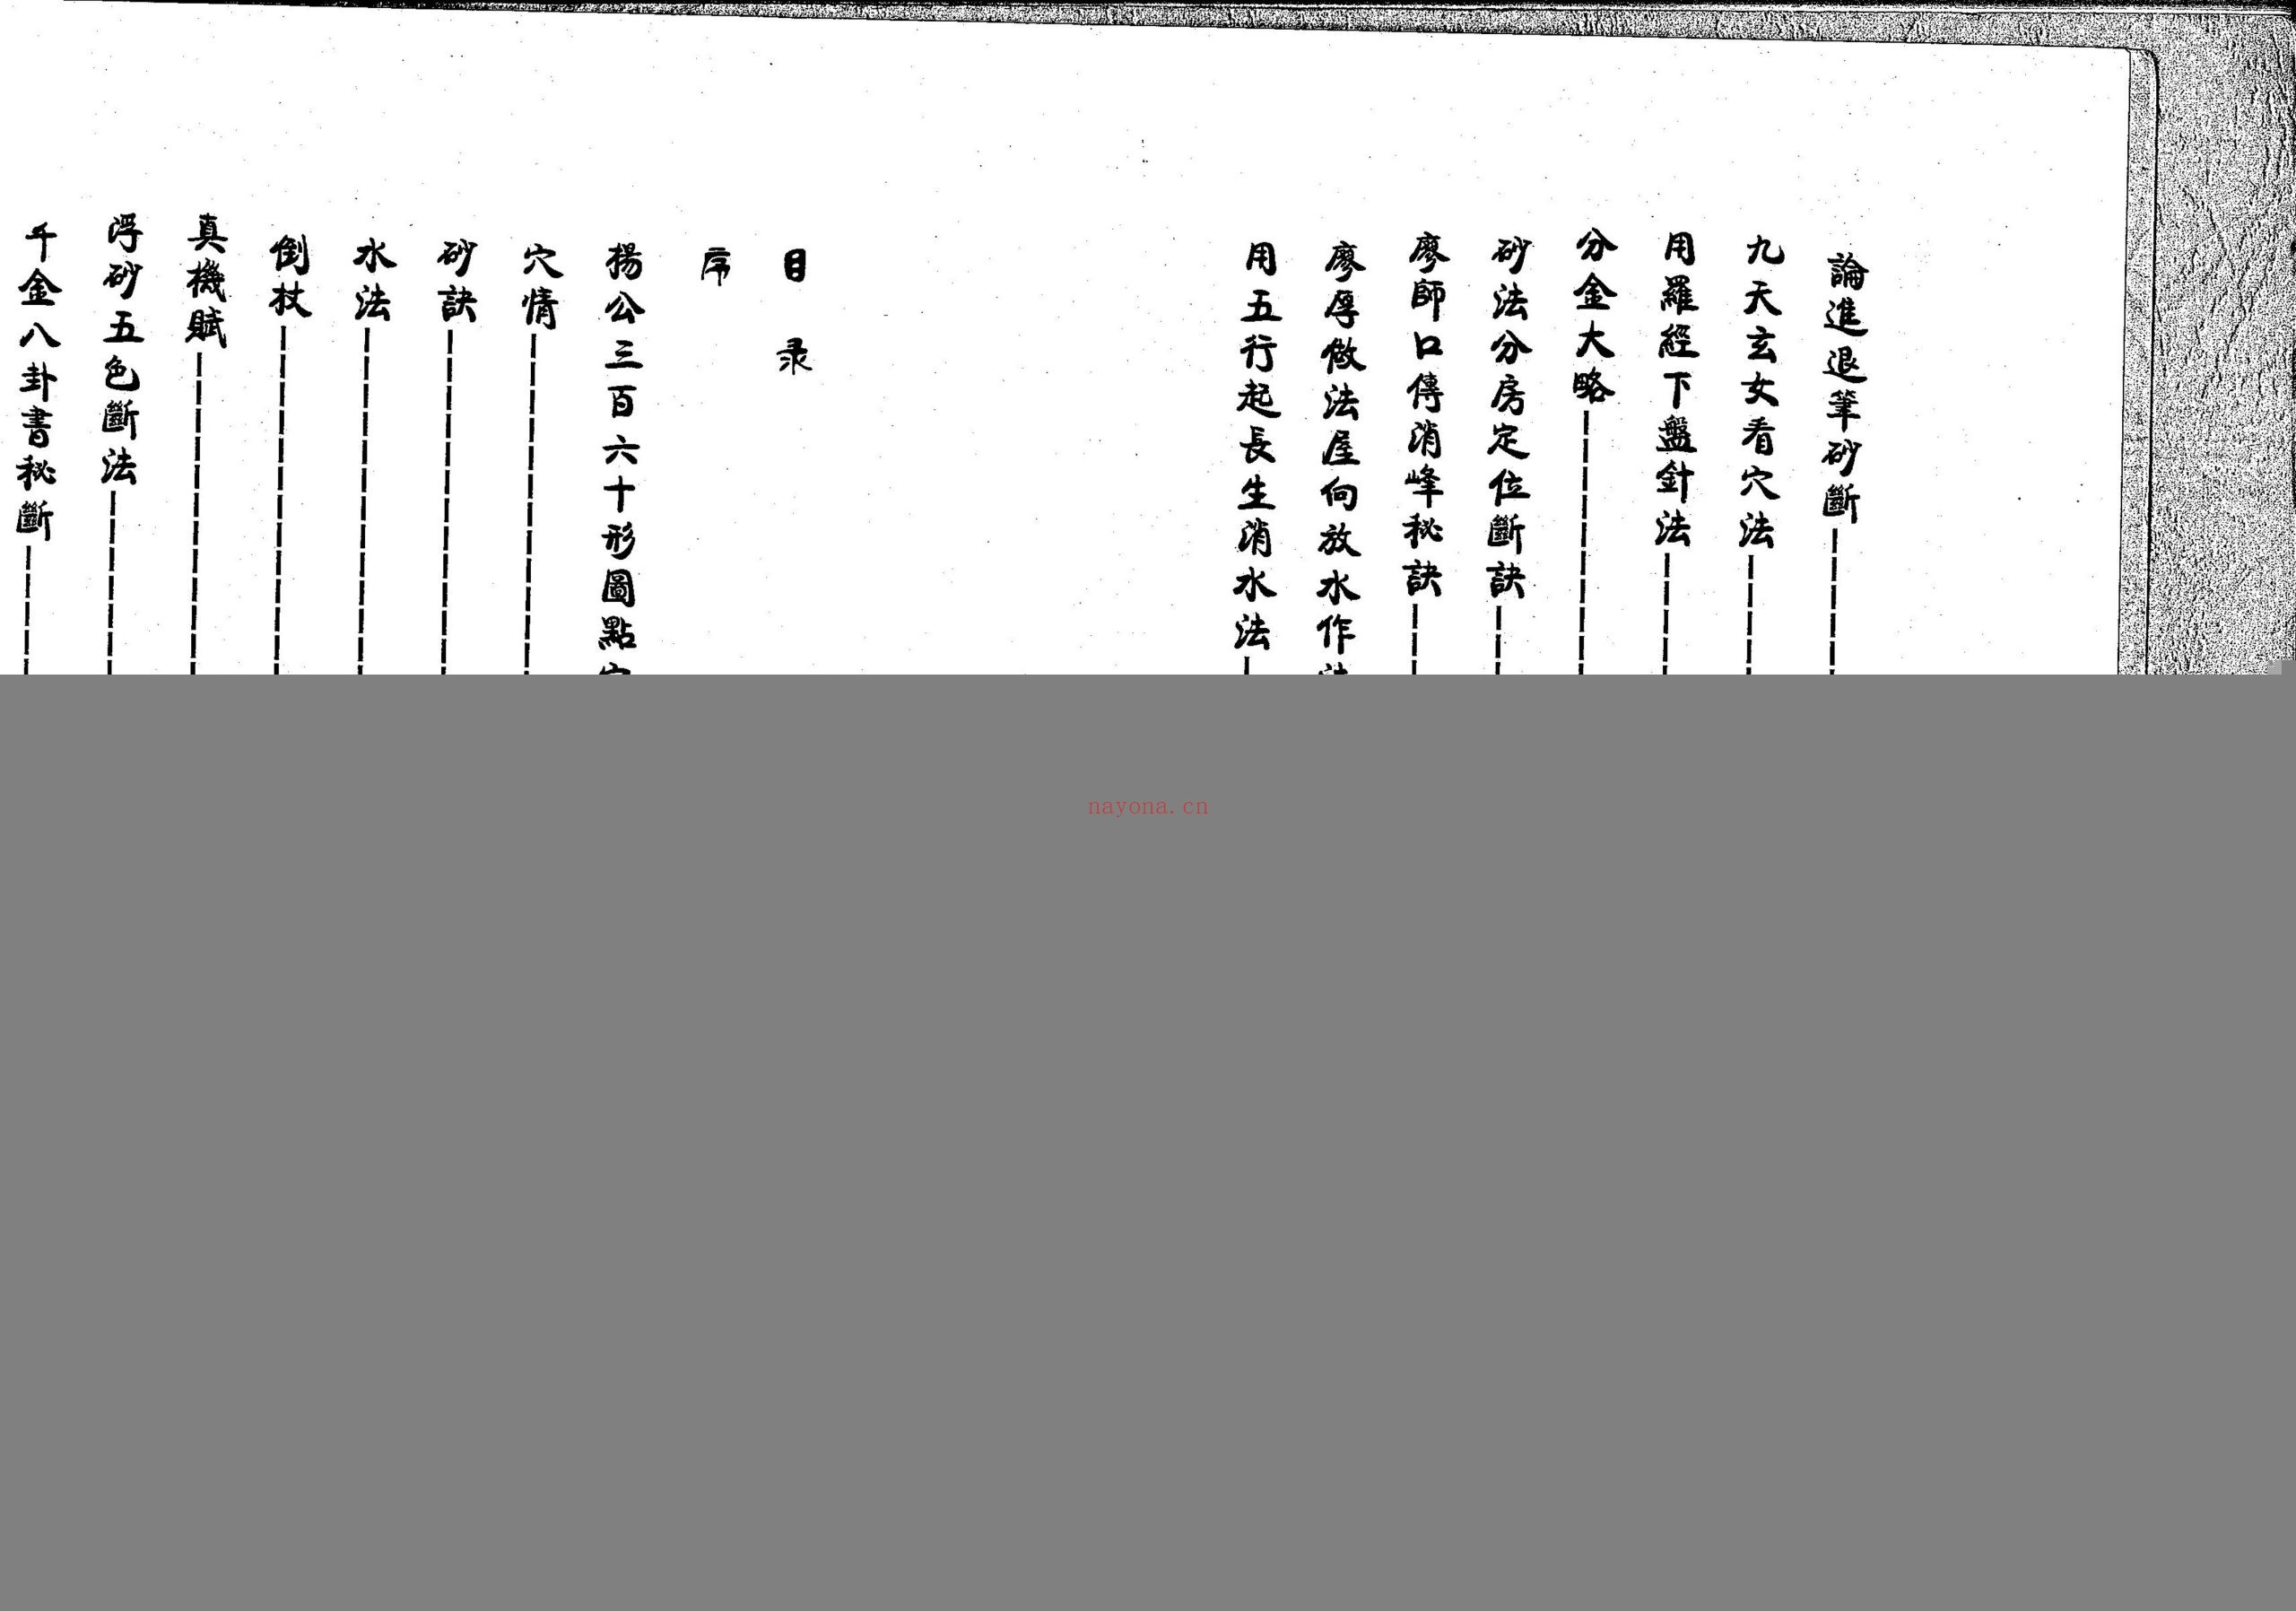 論進退筆砂斷
九天玄女看穴法
用羅經下盤針法
分金大略
砂法分房定位斷訣
廖師口傳消峰秘訣
廖厚做法屋向放水作
用五行起長生消水法
目录
序
揚公三百六十形圖點
穴情
砂訣
水法
倒杖
真機賦
浮砂五色斷法
千金八卦書秘斷
nayona.cn